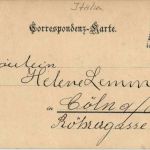 Italia
Correspondenz-Karte.
Fräulein
Helene Lemm
in Cöln a/
Röhrergasse